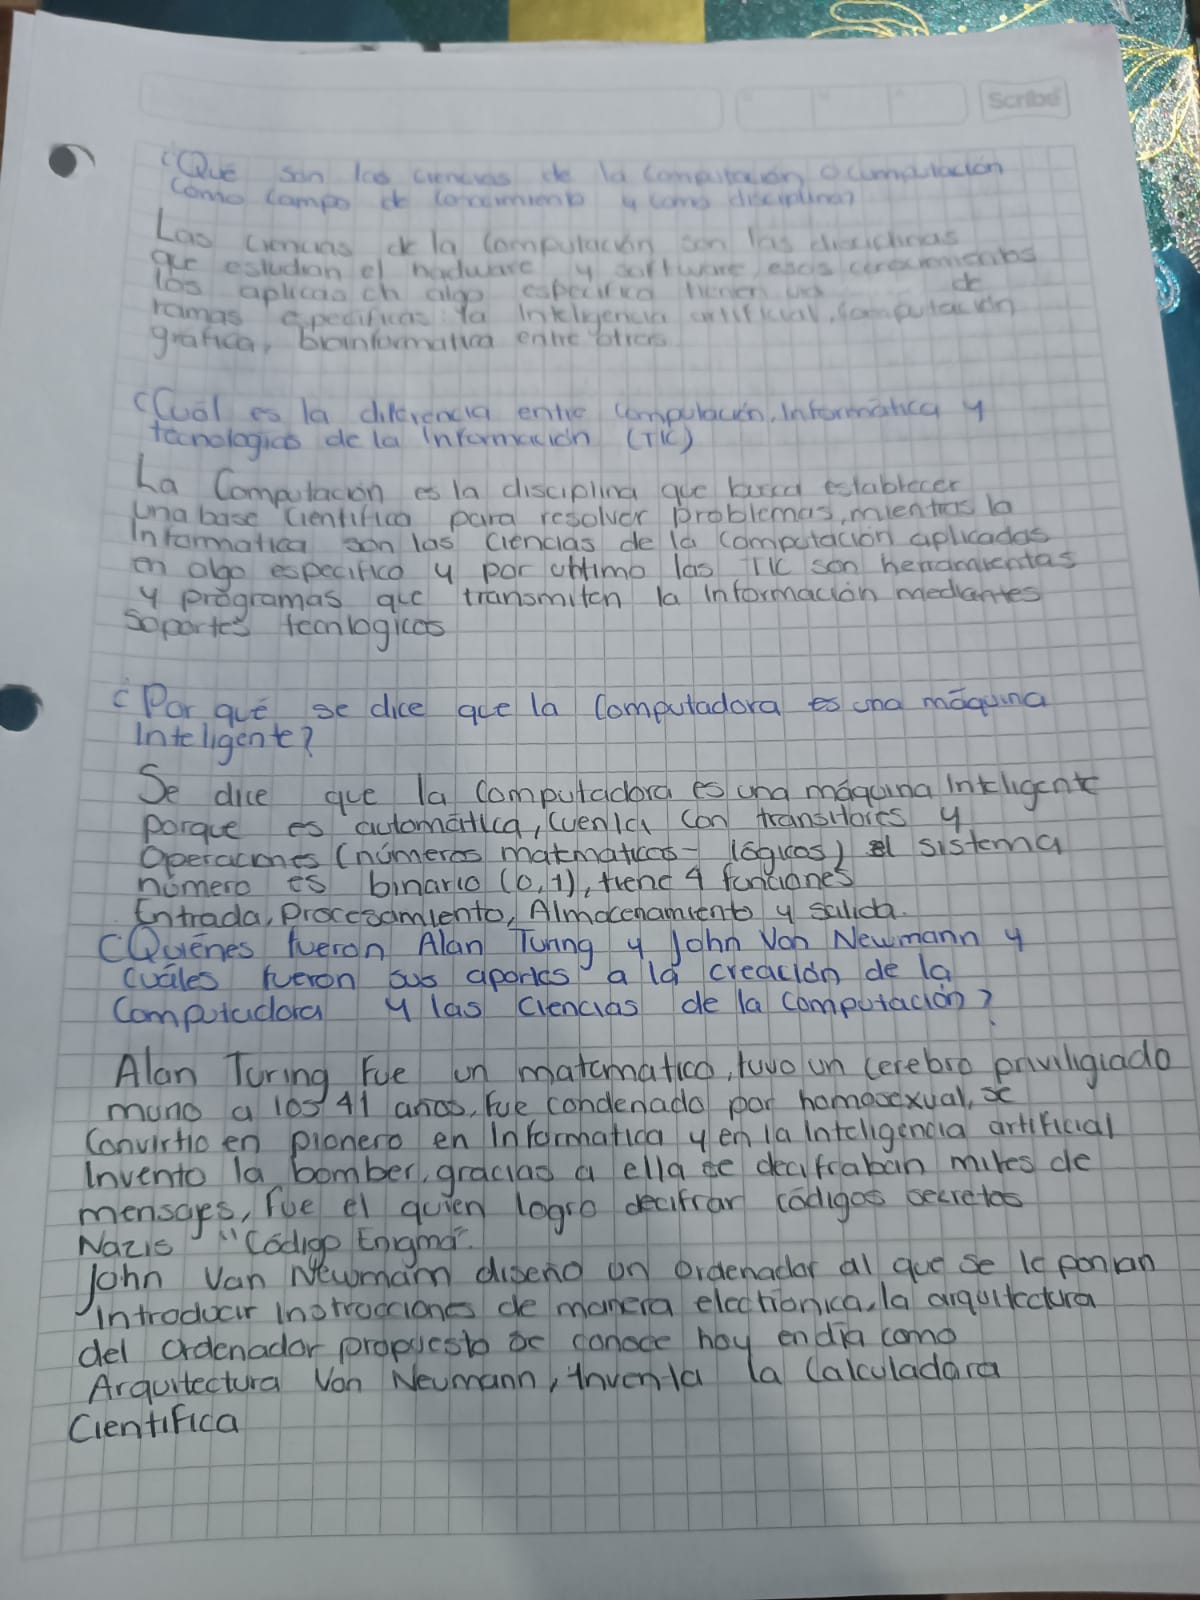 Scribe
¿Qué son las ciencias de la computación o cumputación
como campo de conocimiento y como disciplina?
Las ciencias de la computación son las disciplinas
que estudian el hadware y software, esos conocimientos
los aplicas en algo especifico tienen
de
ramas especificas: la Inteligencia artificial, computación
grafica, bioinformatica entre otras
¿Cuál es la diferencia entre computación, Informática y
tecnologias de la Información (TIC)
La Computación es la disciplina que busca establecer
una base cientifica para resolver problemas, mientras la
Informatica son las ciencias de la computación aplicadas
en algo especifico y por ultimo las TIC son herramientas
y programas que transmiten la información mediantes
soportes tecnlogicos
¿Por qué se dice que la Computadora es una máquina
Inteligente?
Se dice que la Computadora es una máquina Inteligente
porque es automática, cuenta con transitores y
Operaciones (números matematicos - lógicos) el sistema
número es binario (0,1), tiene 4 funciones
Entrada, Procesamiento, Almacenamiento y salida.
¿Quiénes fueron Alan Turing y John Von Newmann y
cuáles fueron sus aportes a la creación de la
Computadora y las Ciencias de la Computación?
Alan Turing Fue un matematico, tuvo un cerebro priviligiado
murio a los 41 años, fue condenado por homosexual, se
Convirtio en pionero en Informatica y en la Inteligencia artificial
Invento la bomber, gracias a ella se decifraban miles de
mensajes, fue el quien logro decifrar códigos secretos
Nazis "Código Enigma".
John Van Newmann diseño un ordenador al que se le ponian
Introducir Instrucciones de manera electronica, la arquitectura
del Ordenador propuesto se conoce hoy en dia como
Arquitectura Von Neumann, inventa la Calculadora
Cientifica